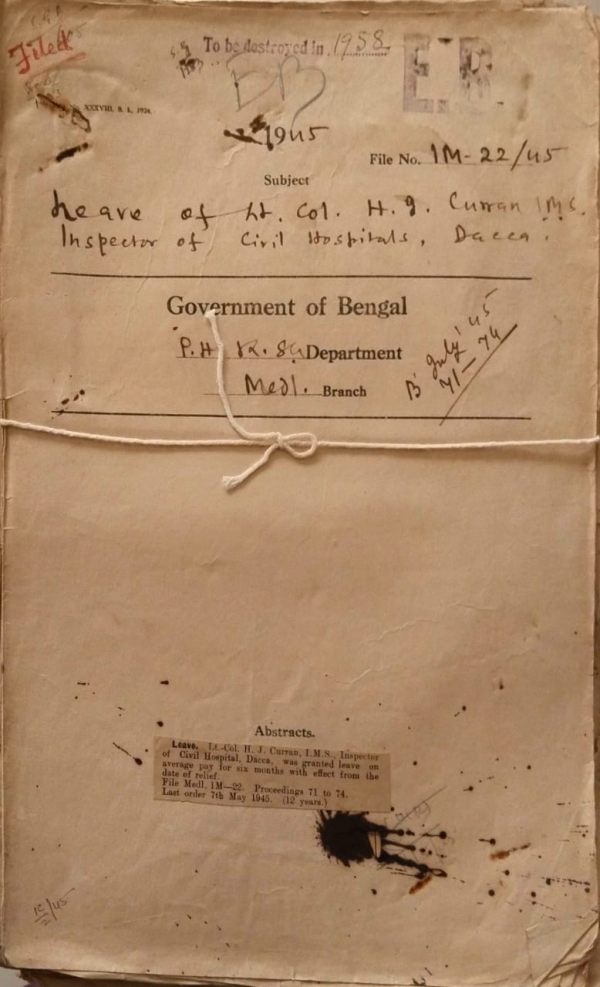 Filed
To be destroyed in 1958
E.B
XXXVIII. B. L, 1924.
1945
File No. 1M-22/45
Subject
Leave of Lt. Col. H. J. Curran I.M.S.
Inspector of Civil Hospitals, Dacca.
Government of Bengal
P.H. Department
Medl. Branch
B July '45
71-74
Abstracts.
Leave. Lt.-Col. H. J. Curran, I.M.S., Inspector
of Civil Hospital, Dacca, was granted leave on
average pay for six months with effect from the
date of relief.
File Medl. 1M—22. Proceedings 71 to 74.
Last order 7th May 1945. (12 years.)